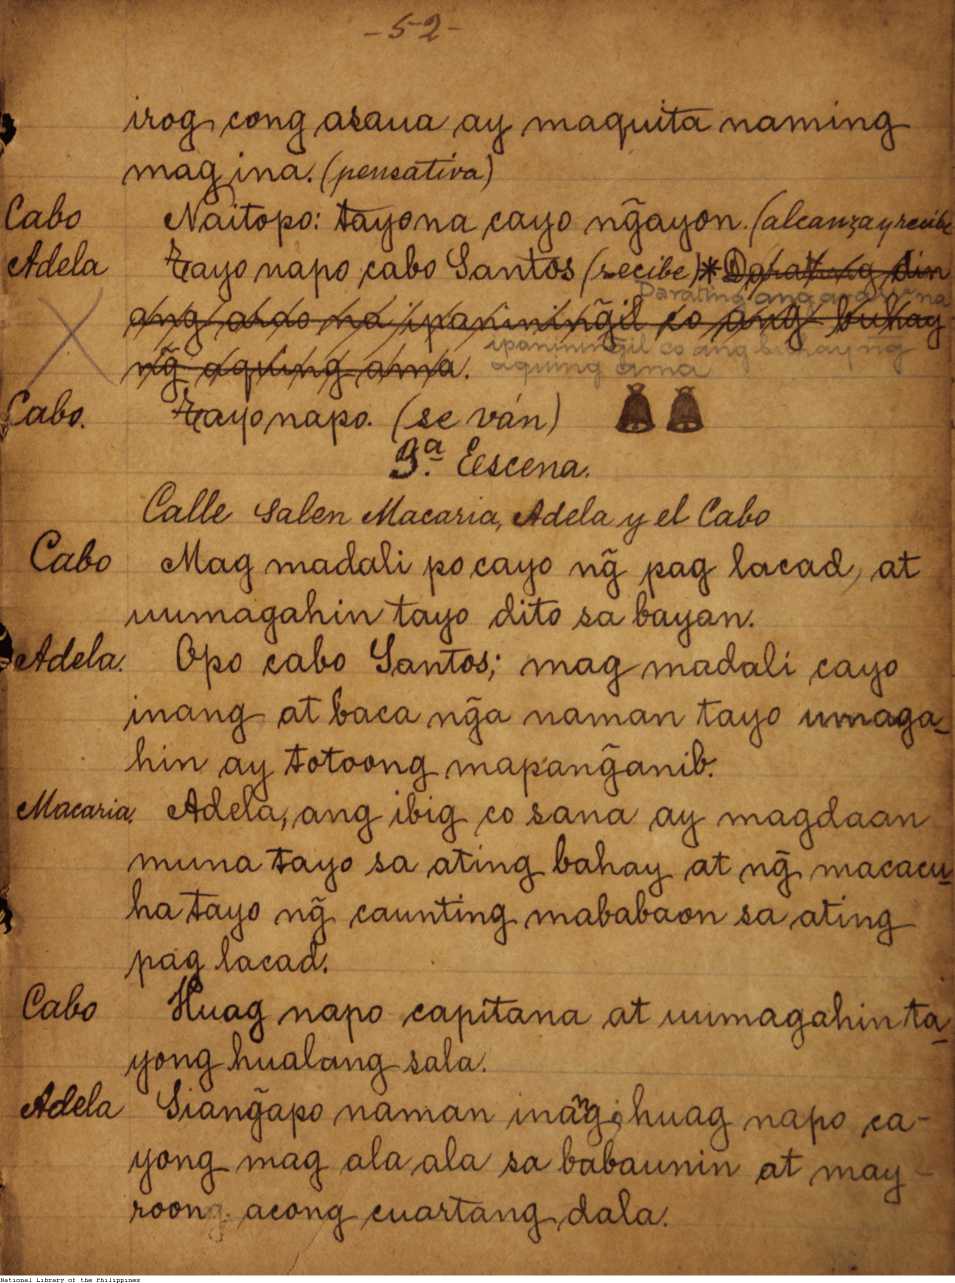 -52-
irog cong asaua ay maquita naming
mag ina. (pensativa)
Cabo Naitopo: tayona cayo ng̃ayon. (alcanza y recibe
Adela Tayo napo cabo Santos (recibe) * Darating din
Darating ang arao na
ang arao na ipanining̃il co ang buhay
ipaniningil co ang buhay ng
ng̃ aquing ama.
aquing ama
Cabo. Tayo napo. (se ván)
9.ª Escena.
Calle Salen Macaria, Adela y el Cabo
Cabo Mag madali po cayo ng̃ pag lacad, at
uumagahin tayo dito sa bayan.
Adela. Opo cabo Santos; mag madali cayo
inang at baca ng̃a naman tayo umaga-
hin ay totoong mapang̃anib.
Macaria. Adela, ang ibig co sana ay magdaan
muna tayo sa ating bahay at ng̃ macacu-
ha tayo ng̃ caunting mababaon sa ating
pag lacad.
Cabo Huag napo capitana at uumagahin ta-
yong hualang sala.
Adela Siang̃apo naman inang; huag napo ca-
yong mag ala ala sa babaunin at may-
roong acong cuartang dala.
National Library of the Philippines